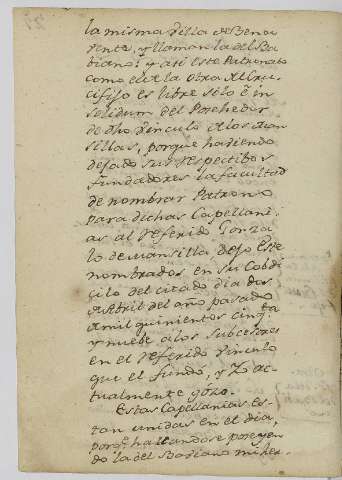 la misma villa de Bena
vente, y llamanla del Ba
diano: y asi este Patronato
como el de la otra del Cru
cifijo es libre solo è in
solidum del Pohedor
de dho vinculo de los Man
sillas, porque haviendo
dejado sus respectibos
fundadores la facultad
de nombrar Patrono
para dichas Capellani
as al referido Gonza
lo de Mansilla dejo
nombrados en su Cobdi
çilo del citado dia dos
de Abril del año pasado
de mil quinientos cinqta
y nuebe a los subcesores
en el referido vinculo
que el fundó, y Yo ac
tualmente gozo.
Estas Capellanias es
tan unidas en el dia,
porqe hallandose poseyen
do la del Badiano